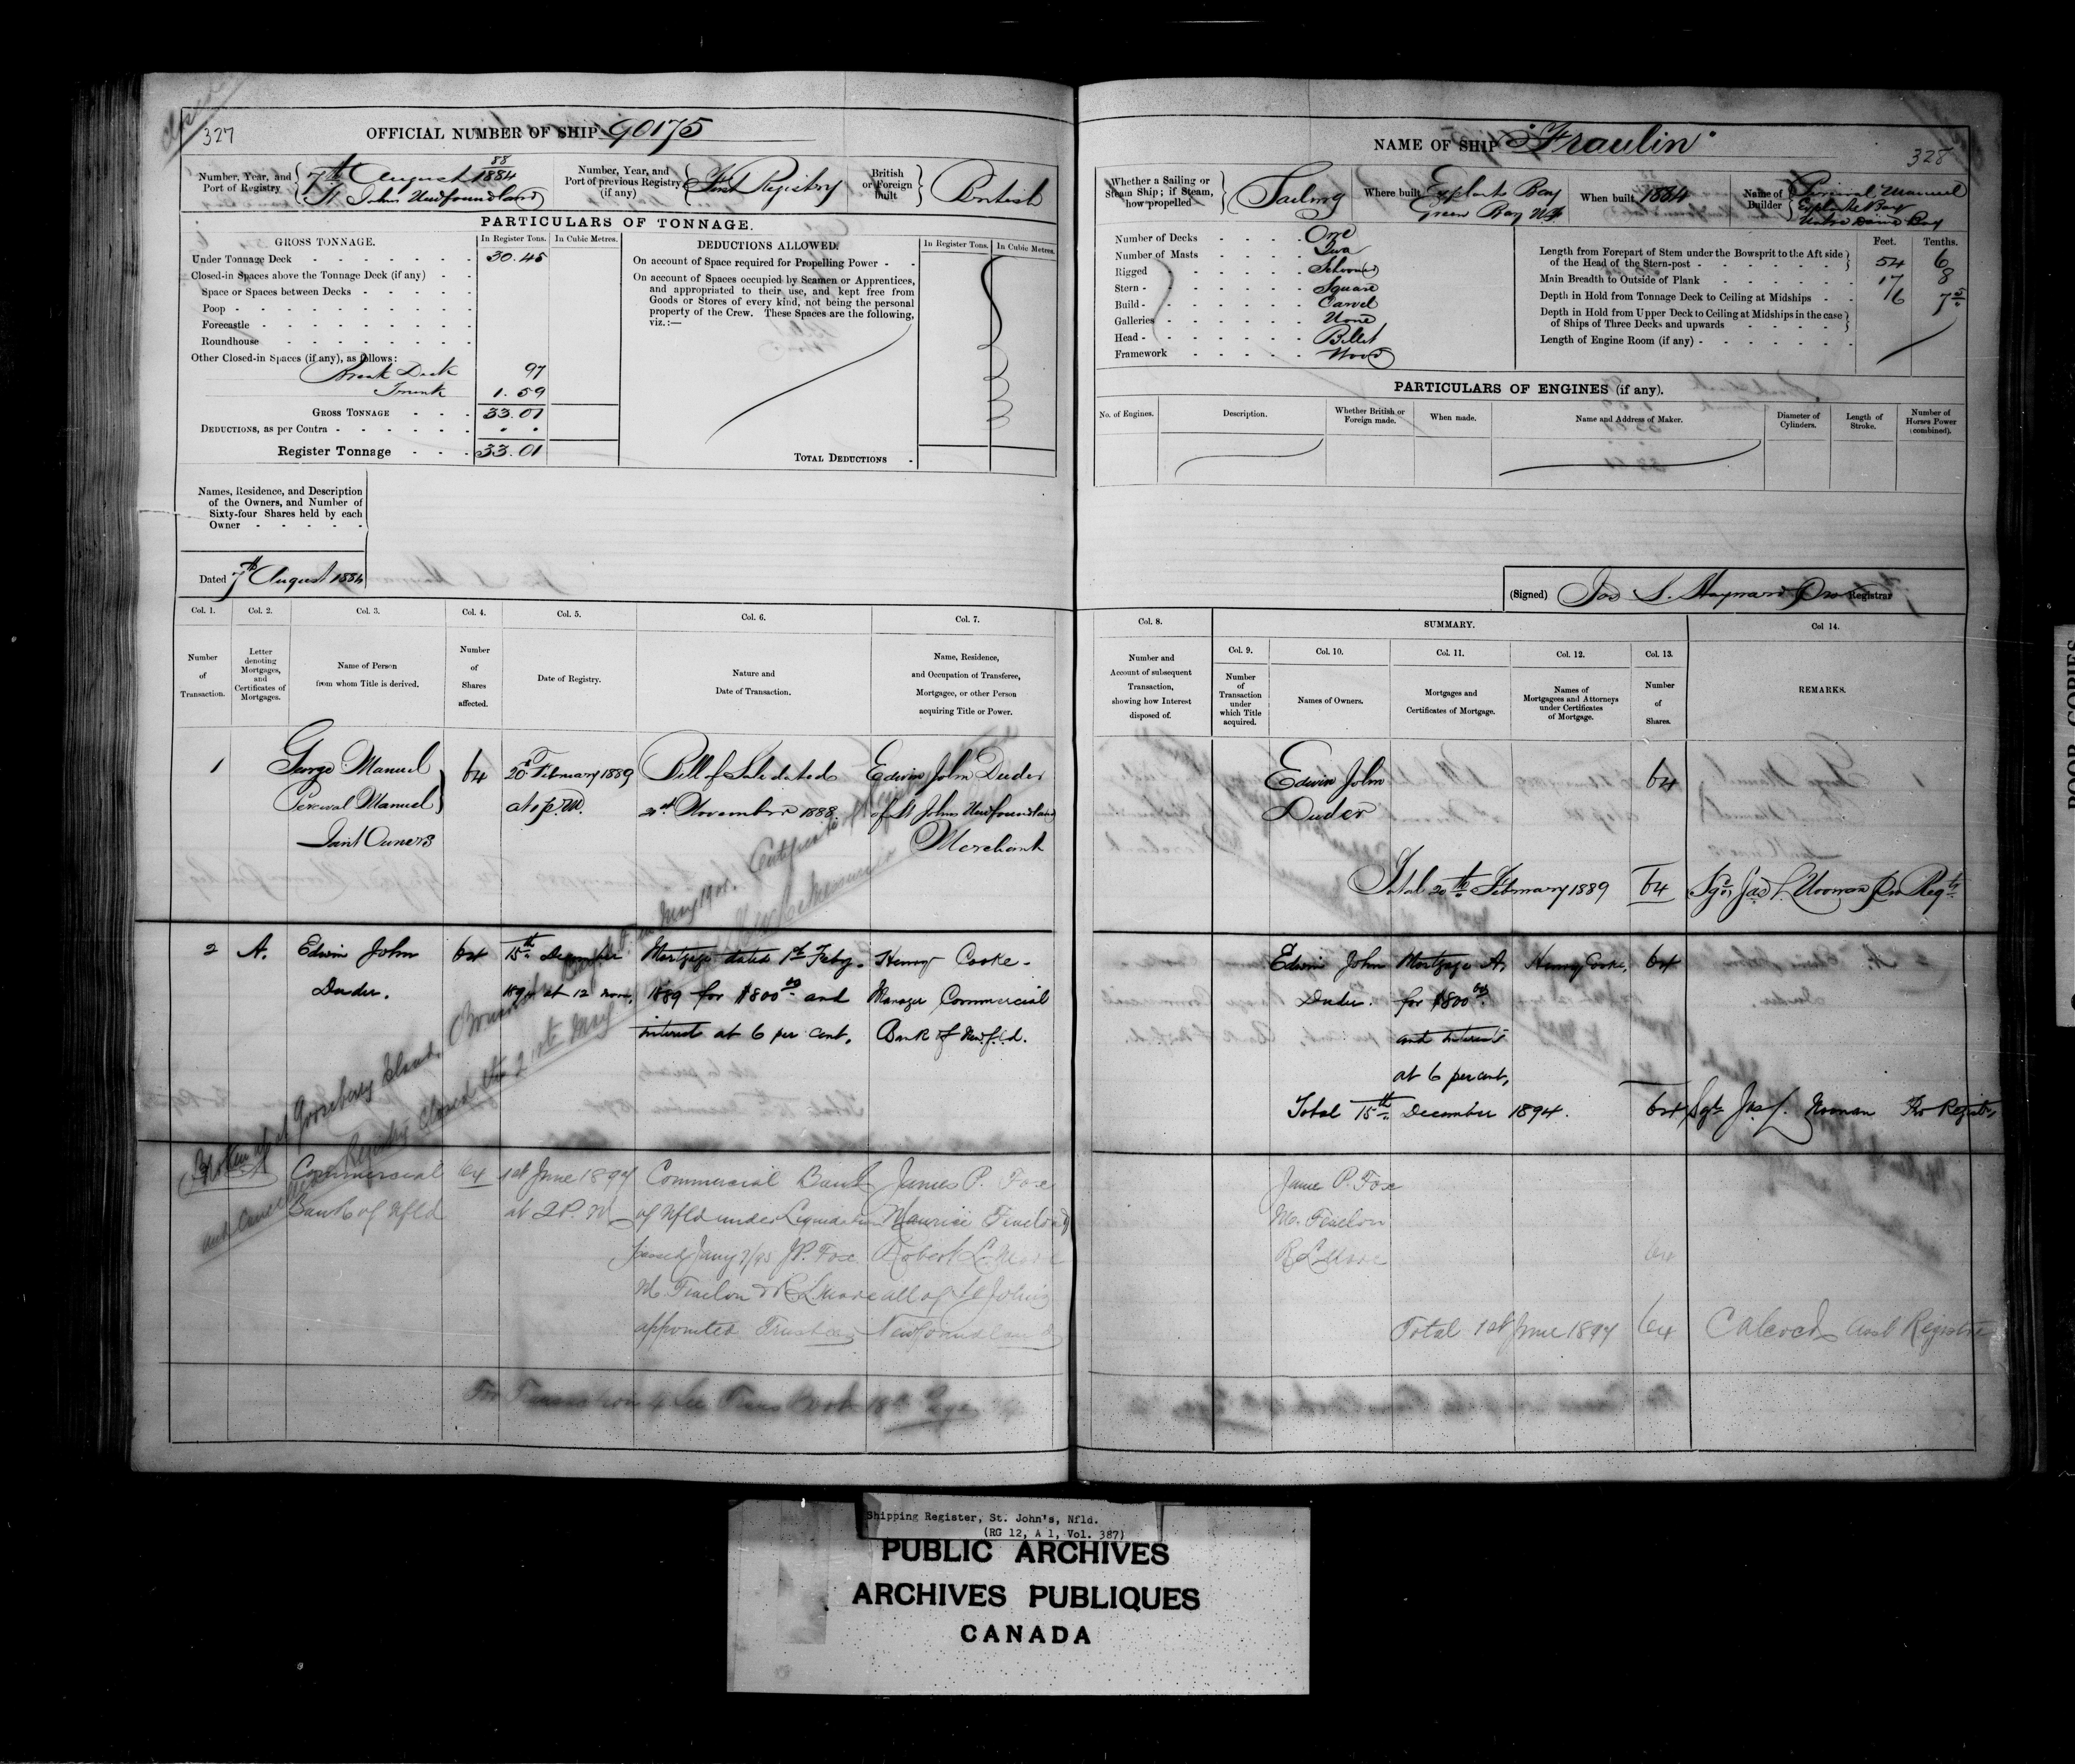 327
OFFICIAL NUMBER OF SHIP 90175
Number, Year, and Port of Registry
88
7th August 1884
St Johns Newfoundland
Number, Year, and Port of previous Registry (if any)
First Registry
British or Foreign built
British
PARTICULARS OF TONNAGE.
GROSS TONNAGE.
In Register Tons.
In Cubic Metres.
Under Tonnage Deck 30.45
Closed-in Spaces above the Tonnage Deck (if any)
Space or Spaces between Decks
Poop
Forecastle
Roundhouse
Other Closed-in Spaces (if any), as follows:
Break Deck 97
Trunk 1.59
GROSS TONNAGE 33.01
DEDUCTIONS, as per Contra
Register Tonnage 33.01
DEDUCTIONS ALLOWED.
In Register Tons.
In Cubic Metres.
On account of Space required for Propelling Power
On account of Spaces occupied by Seamen or Apprentices,
and appropriated to their use, and kept free from
Goods or Stores of every kind, not being the personal
property of the Crew. These Spaces are the following,
viz.:—
TOTAL DEDUCTIONS
Names, Residence, and Description
of the Owners, and Number of
Sixty-four Shares held by each
Owner
Dated 7th August 1884
Col. 1.
Number of Transaction.
Col. 2.
Letter denoting Mortgages, and Certificates of Mortgages.
Col. 3.
Name of Person from whom Title is derived.
Col. 4.
Number of Shares affected.
Col. 5.
Date of Registry.
Col. 6.
Nature and Date of Transaction.
Col. 7.
Name, Residence, and Occupation of Transferee, Mortgagee, or other Person acquiring Title or Power.
1
George Manuel
Percival Manuel
Joint Owners
64
20th February 1889
at 1 p.m.
Bill of Sale dated
November 1888
Edwin John Duder
of St Johns Newfoundland
Merchant
2 A.
Edwin John
Duder.
64
15th December
1894 at 12 noon,
Mortgage dated 1st Feby.
1889 for $800 00 and
interest at 6 per cent,
Henry Cooke-
Manager Commercial
Bank of Newf.l.d.
Broken up at Gooseberry Island, Bonavista Bay May 1901. Certificate
Registry closed this 21st May
Commercial
Bank of Nfld
64
1st June 1897
at 2 P.M
Commercial Bank
of Nfld under Liquidation
Jany 7/95 J.P. Fox
appointed Trustees
James P. Fox
Maurice Fenelon
Robert L.
all of St Johns
Newfoundland
For Transaction 4 see Trans Book
NAME OF SHIP "Fraulin"
328
Whether a Sailing or Steam Ship; if Steam, how propelled
Sailing
Where built
Exploits Bay
Green Bay N.F
When built 1884
Name of Builder
Percival Manuel
Exploits Bay
Notre Dame Bay
Number of Decks One
Number of Masts Two
Rigged Schooner
Stern Square
Build Carvel
Galleries None
Head Billet
Framework Wood
Feet. Tenths.
Length from Forepart of Stem under the Bowsprit to the Aft side
of the Head of the Stern-post 54 6
Main Breadth to Outside of Plank 17 8
Depth in Hold from Tonnage Deck to Ceiling at Midships
Depth in Hold from Upper Deck to Ceiling at Midships in the case
of Ships of Three Decks and upwards
Length of Engine Room (if any)
PARTICULARS OF ENGINES (if any).
No. of Engines.
Description.
Whether British or Foreign made.
When made.
Name and Address of Maker.
Diameter of Cylinders.
Length of Stroke.
Number of Horses Power (combined).
(Signed) Registrar
Col. 8.
Number and Account of subsequent Transaction, showing how Interest disposed of.
SUMMARY.
Col. 9.
Number of Transaction under which Title acquired.
Col. 10.
Names of Owners.
Col. 11.
Mortgages and Certificates of Mortgage.
Col. 12.
Names of Mortgagees and Attorneys under Certificates of Mortgage.
Col. 13.
Number of Shares.
Col 14.
REMARKS.
Edwin John
Duder
64
Total 20th February 1889 64
Edwin John
Duder.
Mortgage A,
for $800 00
and interest
at 6 per cent,
Henry Cooke,
64
Total 15th December 1894. 64
James P. Fox
M. Fenelon
64
Total 1st June 1897 64
Asst Registrar
Shipping Register, St. John's, Nfld.
(RG 12, A 1, Vol. 387)
PUBLIC ARCHIVES
ARCHIVES PUBLIQUES
CANADA
POOR COPIES